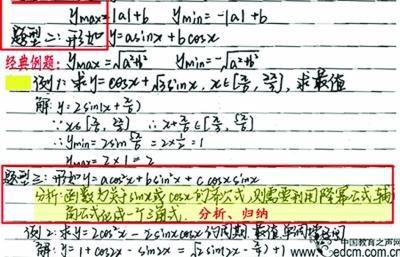 ymax=|a|+b ymin=-|a|+b
题型二:形如y=asinx+bcosx
经典例题: ymax=√a²+b² ymin=-√a²+b²
例1:求y=cosx+√3sinx, x∈[π/6, 2π/3],求最值
解: y=2sin(x+π/6)
∵x∈[π/6, 2π/3] ∴x+π/6∈[π/3, 5π/6]
∴ymin=2sin5π/6=2×1/2=1
ymax=2×1=2
题型三:形如y=acos²x+bsin²x+ccosxsinx
分析:函数为关于sinx或cosx的齐次式,则需要利用降幂公式,辅
角公式化成一个三角式. 分析、归纳
例2:求y=2cos²x-2sinxcosx的周期.最值.单调增区间
解: y=1+cos2x-sin2x=√2sin(2x-
中国教育之声网
edcsw.com.cn